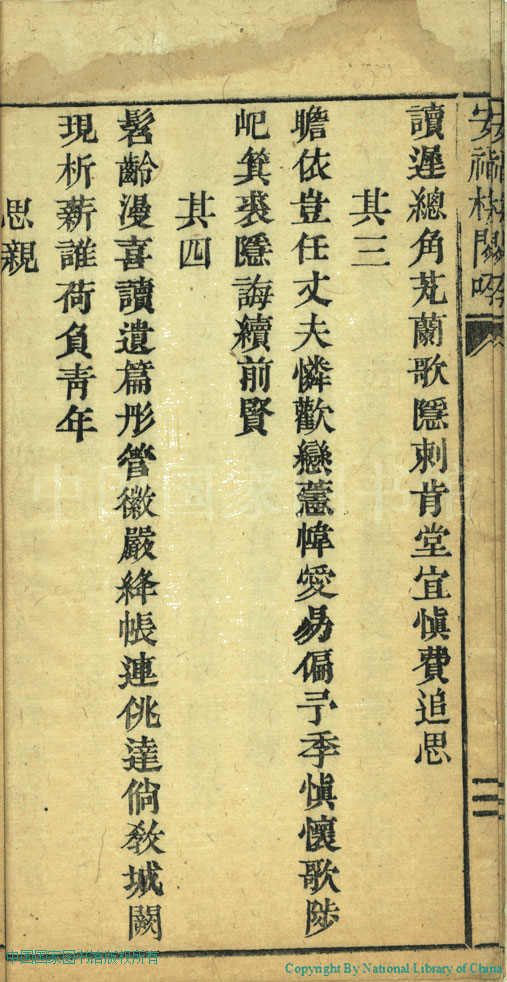 讀遲總角芄蘭歌隱刺肯堂宜愼費追思
其三
瞻依豈任丈夫憐歡戀蕙幃愛易偏予季愼懷歌陟
屺箕裘隱誨續前賢
其四
髫齡漫喜讀遺篇彤管徽嚴絳帳連佻達倘敎城闕
現析薪誰荷負青年
思親
二
中国国家图书馆
中國國家图书馆版权所有
Copyright By National Library of China